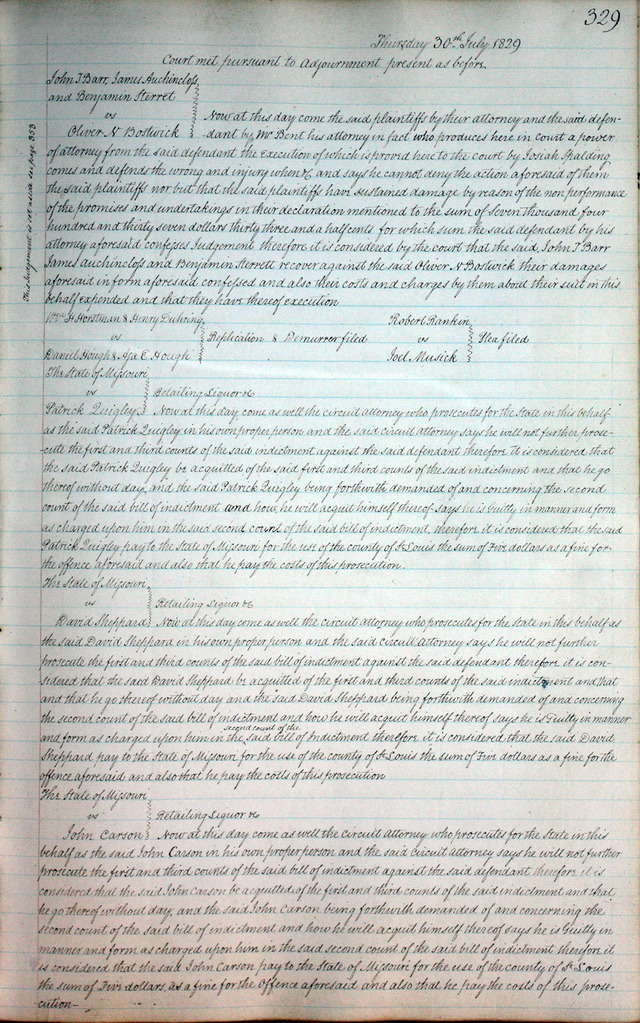 329
Thursday 30th July 1829
Court met pursuant to adjournment present as before
John T Barr, James Auchincloss
and Benjamin Sterret
vs
Oliver N Bostwick
Now at this day come the said plaintiffs by their attorney and the said defen-
dant by Mr Bent his attorney in fact who produces here in court a power
of attorney from the said defendant the execution of which is proved here to the court by Josiah Spalding
comes and defends the wrong and injury when &c and says he cannot deny the action aforesaid of them
the said plaintiffs nor but that the said plaintiffs have sustained damage by reason of the non performance
of the promises and undertakings in their declaration mentioned to the sum of seven thousand four
hundred and thirty seven dollars thirty three and a half cents for which sum the said defendant by his
attorney aforesaid confesses Judgement therefore it is considered by the court that the said, John T Barr
James Auchincloss and Benjamin Sterrett recover against the said Oliver N Bostwick their damages
aforesaid in form aforesaid confessed and also their costs and charges by them about their suit in this
behalf expended and that they have thereof execution
This Judgement is set aside see page 353
Wm H Horstman & Henry Duhring
vs
Daniel Hough & Asa E Hough
Replication & Demurrer filed
Robert Rankin
vs
Joel Musick
Plea filed
The State of Missouri
vs
Patrick Quigley
Retailing Liquor &c
Now at this day come as well the circuit attorney who prosecutes for the State in this behalf
as the said Patrick Quigley in his own proper person and the said circuit attorney says he will not further prose-
-cute the first and third counts of the said indictment against the said defendant therefore It is considered that
the said Patrick Quigley be acquitted of the said first and third counts of the said indictment and that he go
thereof without day, and the said Patrick Quigley being forthwith demanded of and concerning the second
count of the said bill of indictment and how he will acquit himself thereof Says he is Guilty in manner and form
as charged upon him in the said second count of the said bill of indictment, therefore it is considered that the said
Patrick Quigley pay to the State of Missouri for the use of the county of St Louis the sum of Five dollars as a fine for
the offence aforesaid and also that he pay the costs of this prosecution.
The State of Missouri
vs
David Sheppard
Retailing Liquor &c
Now at this day come as well the circuit attorney who prosecutes for the state in this behalf as
the said David Sheppard in his own proper person and the said circuit Attorney says he will not further
prosecute the first and third counts of the said bill of indictment against the said defendant therefore it is con-
sidered that the said David Sheppard be acquitted of the first and third counts of the said indictment and that
and that he go thereof without day and the said David Sheppard being forthwith demanded of and concerning
the second count of the said bill of indictment and how he will acquit himself thereof says he is Guilty in manner
and form as charged upon him in the second count of the said bill of Indictment therefore it is considered that the said David
Sheppard pay to the State of Missouri for the use of the county of St Louis the sum of Five dollars as a fine for the
offence aforesaid and also that he pay the costs of this prosecution
The State of Missouri
vs
John Carson
Retailing Liquor &c
Now at this day come as well the circuit Attorney who prosecutes for the State in this
behalf as the said John Carson in his own proper person and the said circuit attorney says he will not further
prosecute the first and third counts of the said bill of indictment against the said defendant therefore it is
considered that the said John Carson be acquitted of the first and third counts of the said indictment and that
he go thereof without day, and the said John Carson being forthwith demanded of and concerning the
second count of the said bill of indictment and how he will acquit himself thereof says he is Guilty in
manner and form as charged upon him in the said second count of the said bill of indictment therefore it
is considered that the said John Carson pay to the State of Missouri for the use of the county of St Louis
the sum of Five dollars, as a fine for the Offence aforesaid and also that he pay the costs of this prose-
cution-